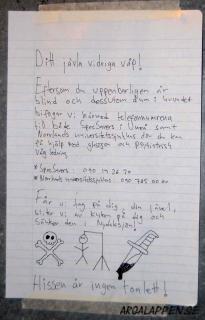 Ditt jävla vidriga våp!
Eftersom du uppenbarligen är
blind och dessutom dum i huvudet
bifogar vi härmed telefonnumrena
till både SpecSavers i Umeå samt
Norrlands universitetssjukhus där du kan
få hjälp med glasögon och psykiatrisk
vårdning.
* SpecSavers: 090
* Norrlands universitetssjukhus: 090 785 00 00
Får vi tag på dig, din jävel,
sliter vi av kuken på dig och
sänker den i Nydalasjön!
Hissen är ingen toalett!
ARGALAPPEN.SE